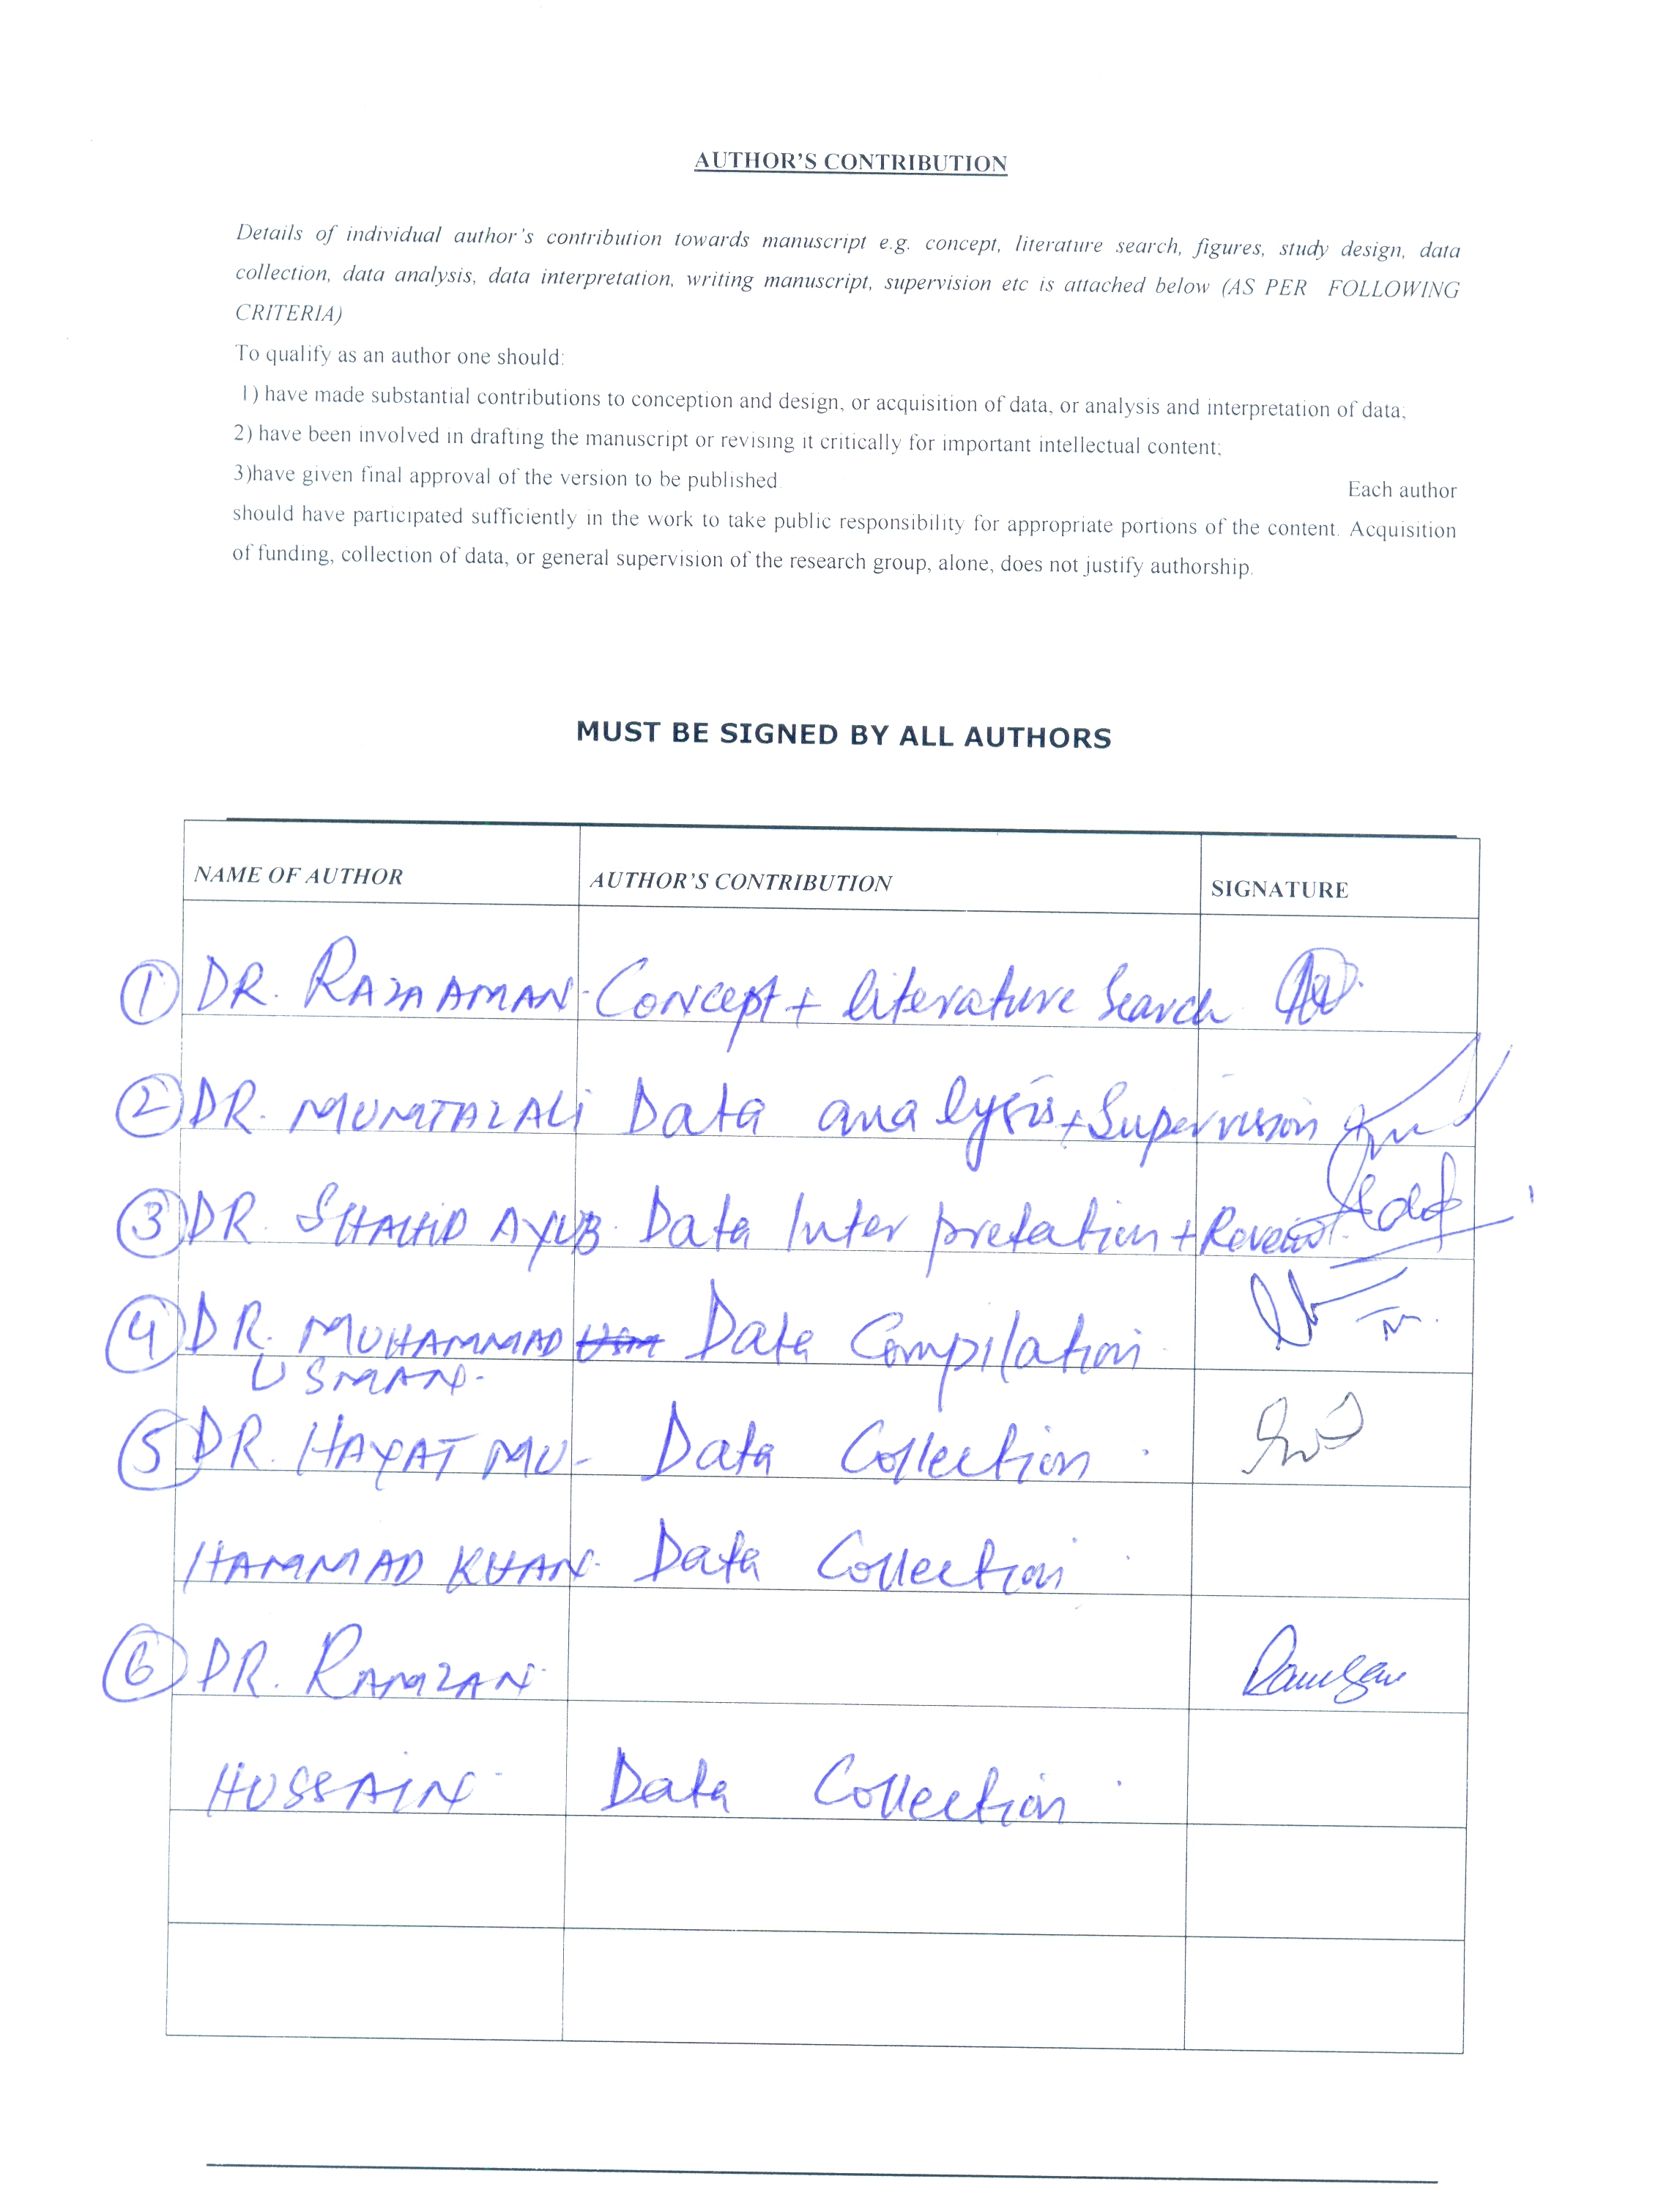 AUTHOR'S CONTRIBUTION
Details of individual author's contribution towards manuscript e.g. concept, literature search, figures, study design, data
collection, data analysis, data interpretation, writing manuscript, supervision etc is attached below (AS PER FOLLOWING
CRITERIA)
To qualify as an author one should:
1) have made substantial contributions to conception and design, or acquisition of data, or analysis and interpretation of data;
2) have been involved in drafting the manuscript or revising it critically for important intellectual content;
3)have given final approval of the version to be published. Each author
should have participated sufficiently in the work to take public responsibility for appropriate portions of the content. Acquisition
of funding, collection of data, or general supervision of the research group, alone, does not justify authorship.
MUST BE SIGNED BY ALL AUTHORS
NAME OF AUTHOR AUTHOR'S CONTRIBUTION SIGNATURE
① DR. RAZA AMAN. Concept + literature Search
② DR. MUMTAZ ALI Data analysis + Supervision
③ DR. SHAHID AYUB. Data Interpretation +
④ DR. MUHAMMAD Data Compilation
USMAN.
⑤ DR. HAYAT MU- Data Collection.
HAMMAD KHAN. Data Collection.
⑥ DR. RAMZAN. Ramzan
HUSSAIN. Data Collection.